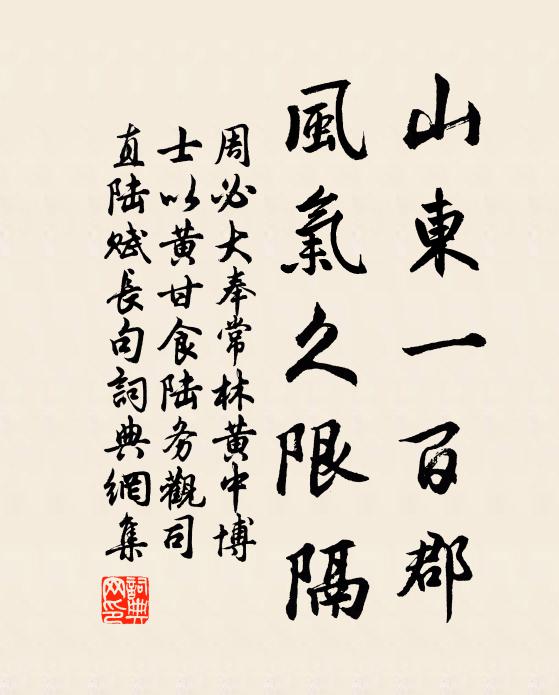 山東一百郡
風氣久限隔
周必大奉常林黄中博
士以黄甘食陸務觀司
直陸賦長句詞典網集
詞典網印